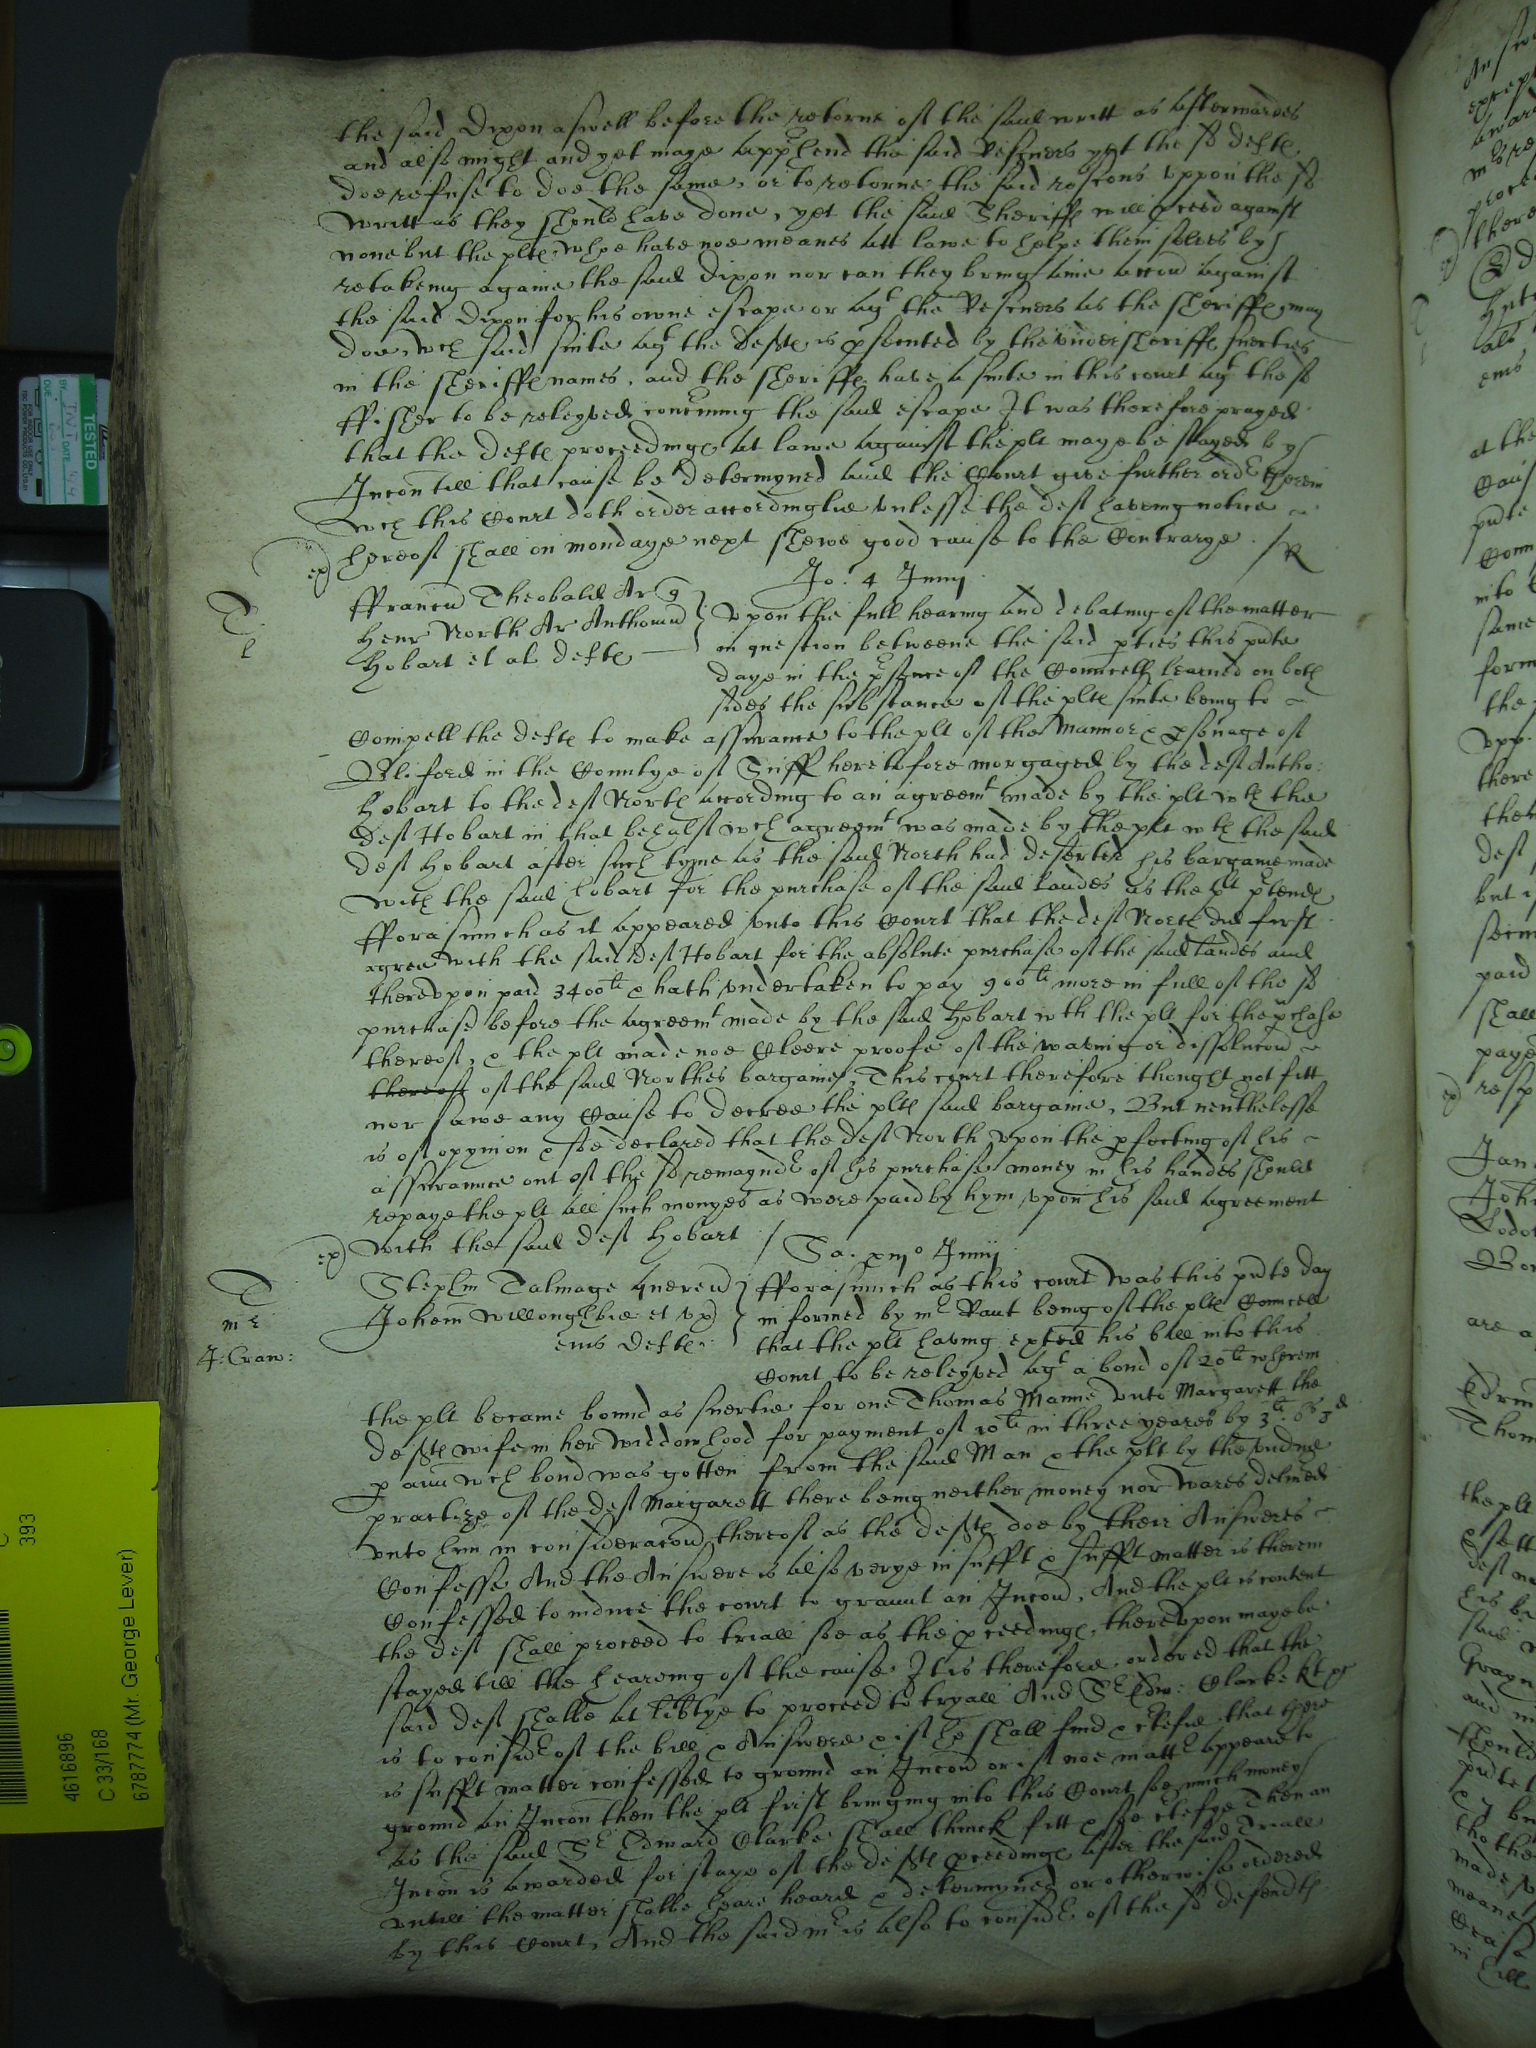 the said Dixon aswell before the retorne of the said writt as afterwardes
and also might and yet maye apprhend the said Resiners yet the sd deftes
doe refuse to doe the same, or to retorne the said rescous vppon the sd
writt as they should have done, yet the said Sheriffes will pceed against
none but the pltes whoe have noe meanes att lawe to helpe them selves by
retakeing againe the said Dixon nor can they bring anie accon against
the said Dixon for his owne escape or agt the Resiners as the sheriffes may
doe, wch said suite agt the deftes is psecuted by the vndersheriffes suerties
in the sheriffes names, and the sheriffes have a suite in this court agt the sd
ffisher to be releyved concerning the said escape It was therefore prayed
that the deftes proceedinges at lawe against the plt maye be stayed by
Incon till that cause be determyned and the Court give further ordr therein
wch this Court doth order accordinglie vnlesse the deft haveing notice
hereof shall on mondaye next shewe good cause to the Contrarye . / R
Jo: 4 Junij
ffrancu Theobald Ar q
Henr North Ar Anthoniu
Hobart et al deftes
vpon the full hearing and debating of the matter
in question betweene the said pties this pnte
daye in the psence of the Councell learned on both
sides the substance of the pltes suite being to
Compell the deftes to make assurance to the plt of the Mannor & psonage of
Bliford in the Countye of Suff heretofore morgaged by the deft Antho:
Hobart to the deft North according to an agreemt made by the plt wth the
deft Hobart in that behalf wch agreemt was made by the plt wth the said
deft Hobart after such tyme as the said North had deserted his bargaine made
with the said Hobart for the purchase of the said landes as the plt ptendes
fforasmuch as it appeared vnto this Court that the deft North did first
agree with the said deft Hobart for the absolute purchase of the said landes and
therevpon paid 3400li & hath vndertaken to pay 900li more in full of the sd
purchase before the agreemt made by the said Hobart wth the plt for the pchase
thereof, & the plt made noe Cleere proofe of the waving or dissolucon
thereoff of the said Northes bargaine, This court therefore thought not fitt
nor sawe any Cause to decree the pltes said bargaine, But neuthelesse
is of opynion & soe declared that the deft North vpon the pfecting of his
assurance out of the sd remayndr of his purchase money in his handes should
repaye the plt all such monyes as were paid by hym vpon his said agreement
with the said deft Hobart /
Sa. xmo Junij
T
mr
J: Craw:
Stephm Talmage quer
Johem Willoughbie et vx
eius deftes
fforasmuch as this court was this pnte day
informed by mr Rant being of the pltes Councell
that the plt having exhted his bill into this
Court to be releyved agt a bond of 20li wherein
the plt became bound as suertie for one Thomas Manne vnto Margarett the
deftes wife in her widdowhood for payment of 10li in three yeares by 3li 6s 8d
p ann wch bond was gotten from the said Man & the plt by the vndue
practize of the deft Margarett there being neither money nor wares delived
vnto him in consideracon thereof as the deftes doe by their Answeres
Confesse And the Answere is also verye insufft & sufft matter is therein
Confessed to induce the court to graunt an Incon, And the plt is content
the deft shall proceed to triall soe as the pceedinges therevpon maye be
stayed till the heareing of the cause It is therefore ordered that the
said deft shalbe at libtye to proceed to tryall And Sr Edw: Clarke kt
is to considr of the bill & Answere & if he shall find & ctefie that there
is sufft matter confessed to ground an Incon or if noe mattr appeare to
ground an Incon then the plt first bringing into this Court soe much money
as the said Sr Edward Clarke shall thinck fitt & soe ctefye Then an
Incon is awarded for staye of the deftes pceedinges after the said Triall
vntill the matter shalbe heare heard & determyned or otherwise ordered
by this Court, And the said mr is also to considr of the sd defendtes
TESTED
393
4616896
C 33/168
6787774 (Mr. George Lever)